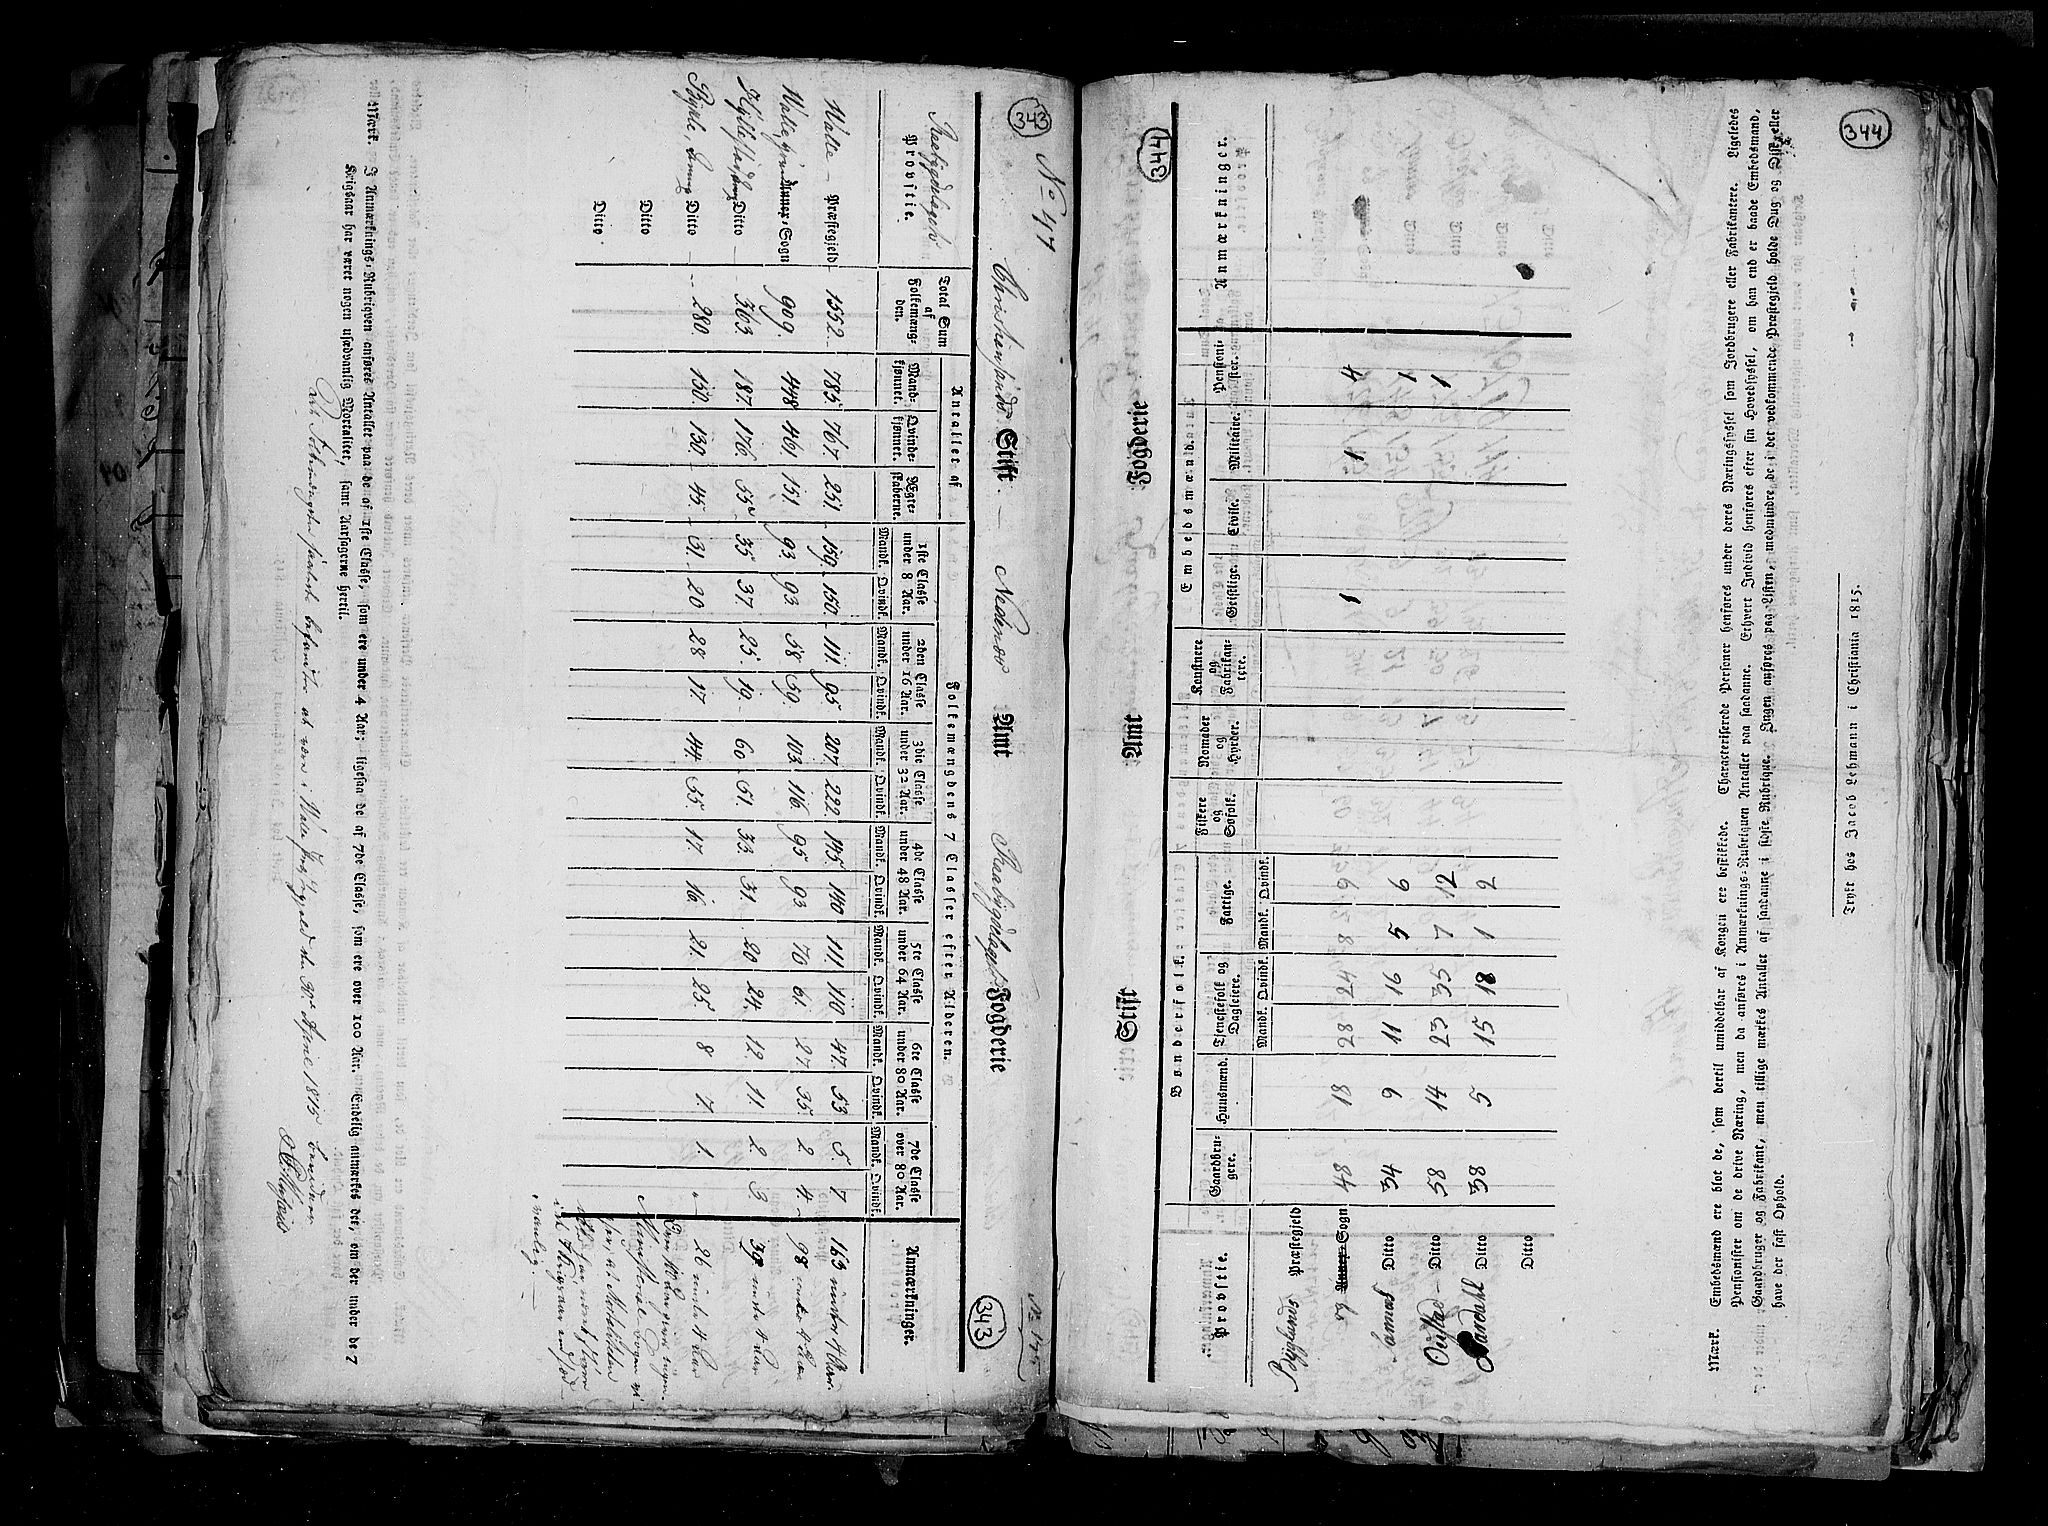 343
No 47
Christiansands Stift. — Nedenes Amt Raabygdelagets Fogderie
No 175
343
Raabygdelagets
Provstie.
Total Sum
af
Folkemæng-
den.
Antallet af
Mand-
kjønnet.
Qvinde-
kjønnet.
Ægte-
skaberne.
Folkemængdens 7 Classer efter Alderen.
1ste Classe under 8 Aar.
2den Classe under 16 Aar.
3die Classe under 32 Aar.
4de Classe under 48 Aar.
5te Classe under 64 Aar.
6te Classe under 80 Aar.
7de Classe over 80 Aar.
Mandk. Qvindk. Mandk. Qvindk. Mandk. Qvindk. Mandk. Qvindk. Mandk. Qvindk. Mandk. Qvindk. Mandk. Qvindk.
Anmærkninger.
Walle – Præstegjeld 1552. 785. 767. 251. 159. 150. 111. 95. 207. 222. 145. 140. 111. 110. 47. 53. 5. 7 163 under 4 Aar.
Walle Annex, Sogn 909. 448 461. 151 93 93 58 59. 103. 116. 95. 93 70 61. 27. 35 2 4 98 under 4 Aar
Hyllestad, Ditto – 363 187. 176 55 35 37. 25. 19. 60 51. 33. 31. 20 24. 12. 11. 2. 3 39 under 4 Aar
Bykle, Ditto – 280. 150. 130. 45. 31. 20 28 17. 44. 55. 17. 16. 21. 25. 8 7. 1. - 26 under 4 Aar
Ditto
Ditto
Mærk. I Anmærknings-Rubriqven anføres Antallet paa de af 1ste Classe, som ere under 4 Aar; ligesaa de af 7de Classe, som ere over 100 Aar. Endelig anmærkes der, om der under de 7
Krigsaar har været nogen usædvanlig Mortalitet, samt Aarsagerne hertil.
30 April 1815
344
344
Stift Amt Fogderie
Provstie.
Bondefolk.
Gaardbru-
gere.
Huusmænd.
Tjenestefolk og
Dagleiere.
Mandk. Qvindk.
Fattige.
Mandk. Qvindk.
Fiskere
og
Søfolk.
Nomader
og
Hyrder.
Konstnere
og
Fabrikan-
tere.
Embedsmænd.
Geistlige.
Civile.
Militaire.
Pensioni-
ster.
Anmærkninger.
Bygland Præstegjeld
Sogn 48 18 28 24 8 6 1 1 4
Ditto 34 9 11 16 5 6 1
Ditto 58 14 23 35 7 12 1
Ditto 38 5 15 18 1 2
Ditto
Mærk. Embedsmænd ere blot de, som dertil umiddelbar af Kongen ere beskikkede. Characteriserede Personer henføres under deres Næringssyssel som Jordbrugere eller Fabrikantere. Ligeledes
Pensionister om de drive Næring, men da anføres i Anmærknings-Rubriquen Antallet paa saadanne. Ethvert Individ henføres efter sin Hovedsyssel, om han end er baade Embedsmand,
Gaardbruger og Fabrikant, men tillige mærkes Antallet af saadanne i sidste Rubrique. Ingen anføres paa Listen, medmindre de i det vedkommende Præstegjeld holde Dug og Disk eller
have der fast Ophold.
Trykt hos Jacob Lehmann i Christiania 1815.